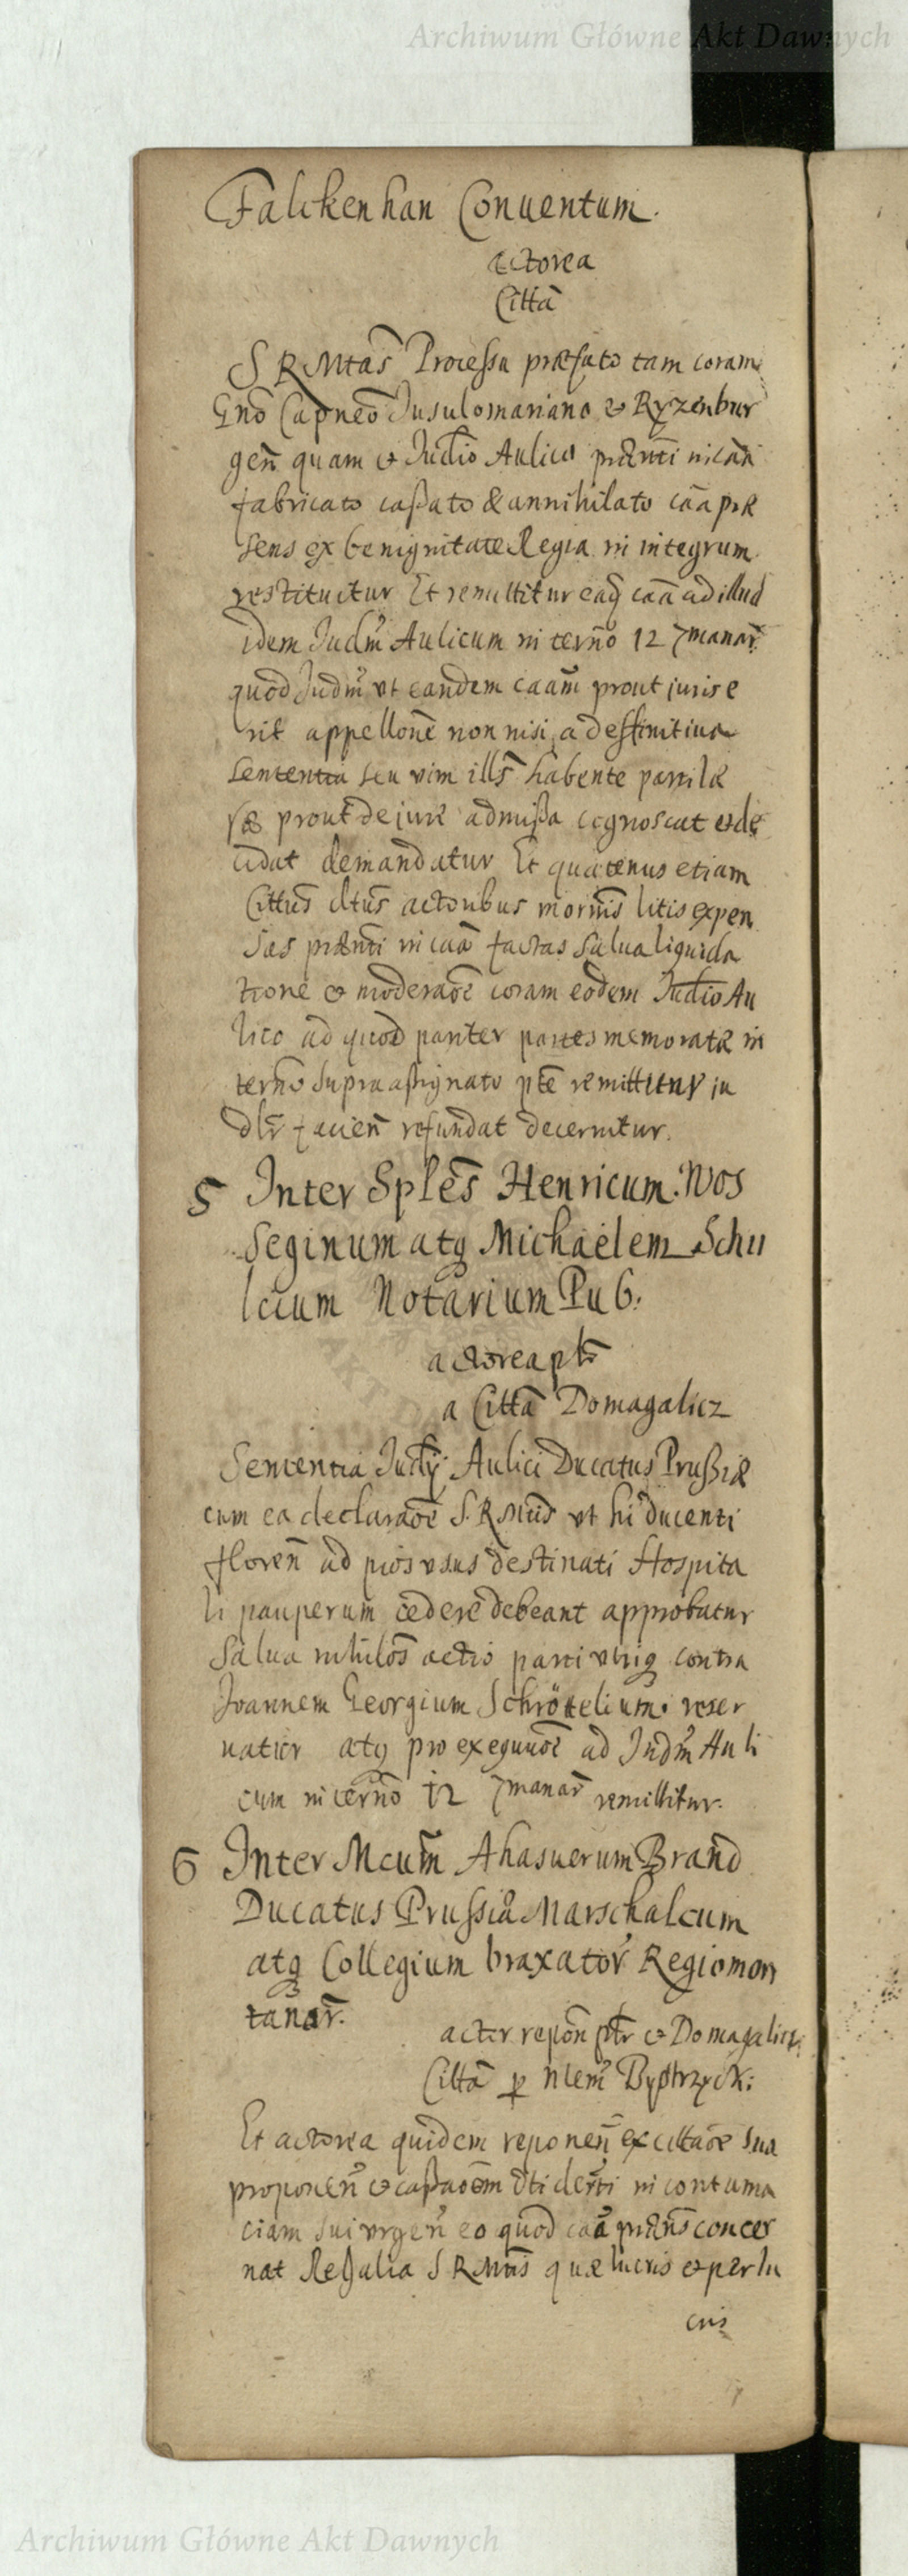 Archiwum Główne Akt Dawnych
Falckenhan Conuentum.
actorea
Cittã
S R Mtãs Processu præfato tam coram
Gnõ Capneõ Insulomariano & Ryzenbur
geñ quam & Iudĩo Aulico prænti in caã
fabricato cassato & annihilato caã præ
sens ex benignitate Regia in integrum
restituitur Et remittitur eadq caã ad illud
idem Iudm̃ Aulicum in terno 12 7manar̃
quod Iudm̃ vt eandem caam̃ prout juris e
rit appellone non nisi a deffinitiua
sententia seu vim ills̃ habente parti læ
sæ prout de jure admissa cognoscat et de
cidat demandatur Et quatenus etiam
Cittus̃ ltus̃ actoribus litis expen
sas prænti in caã factas salua liquida
tione & moderaõe coram eodem Iudĩo Au
lico ad quod pariter partes memoratæ in
terno supra assignato pte remittitur ju
dlr̃ facieñ refundat decernitur.
5 Inter Sples̃ Henricum Wos
seginum atq Michaelem Schu
lcium Notarium Pub:
actorea ptr̃
a Cittã Domagalicz
Sententia Iudĩj Aulici Ducatus Prussiæ
cum ea declaraõe S. R Mtis vt hi ducenti
floreñ ad pios vsus destinati Hospita
li pauperum cedere debeant approbatur
salua nihilos̃ actio parti vtriq contra
Joannem Georgium Schröttelium reser
uatur atq pro exequuõe ad Iudm̃ Auli
cum in terno 12 7manar̃ remittitur.
6 Inter Mcum̃ Ahasuerum Brand
Ducatus Prussiæ Marschalcum
atq Collegium braxator̃ Regiomon
tanar̃.
actor repoñ ptr̃ & Domagalicz
Cittã p Niem̃ Bystrzyck:
Et actorea quidem reponeñ ex cittaõe sua
proponeñ & cassaoẽm in contuma
ciam sui vrgeñ eo quod caã præns̃ concer
nat Regalia S R Mtis quæ lucris et per lu
cris
Archiwum Główne Akt Dawnych